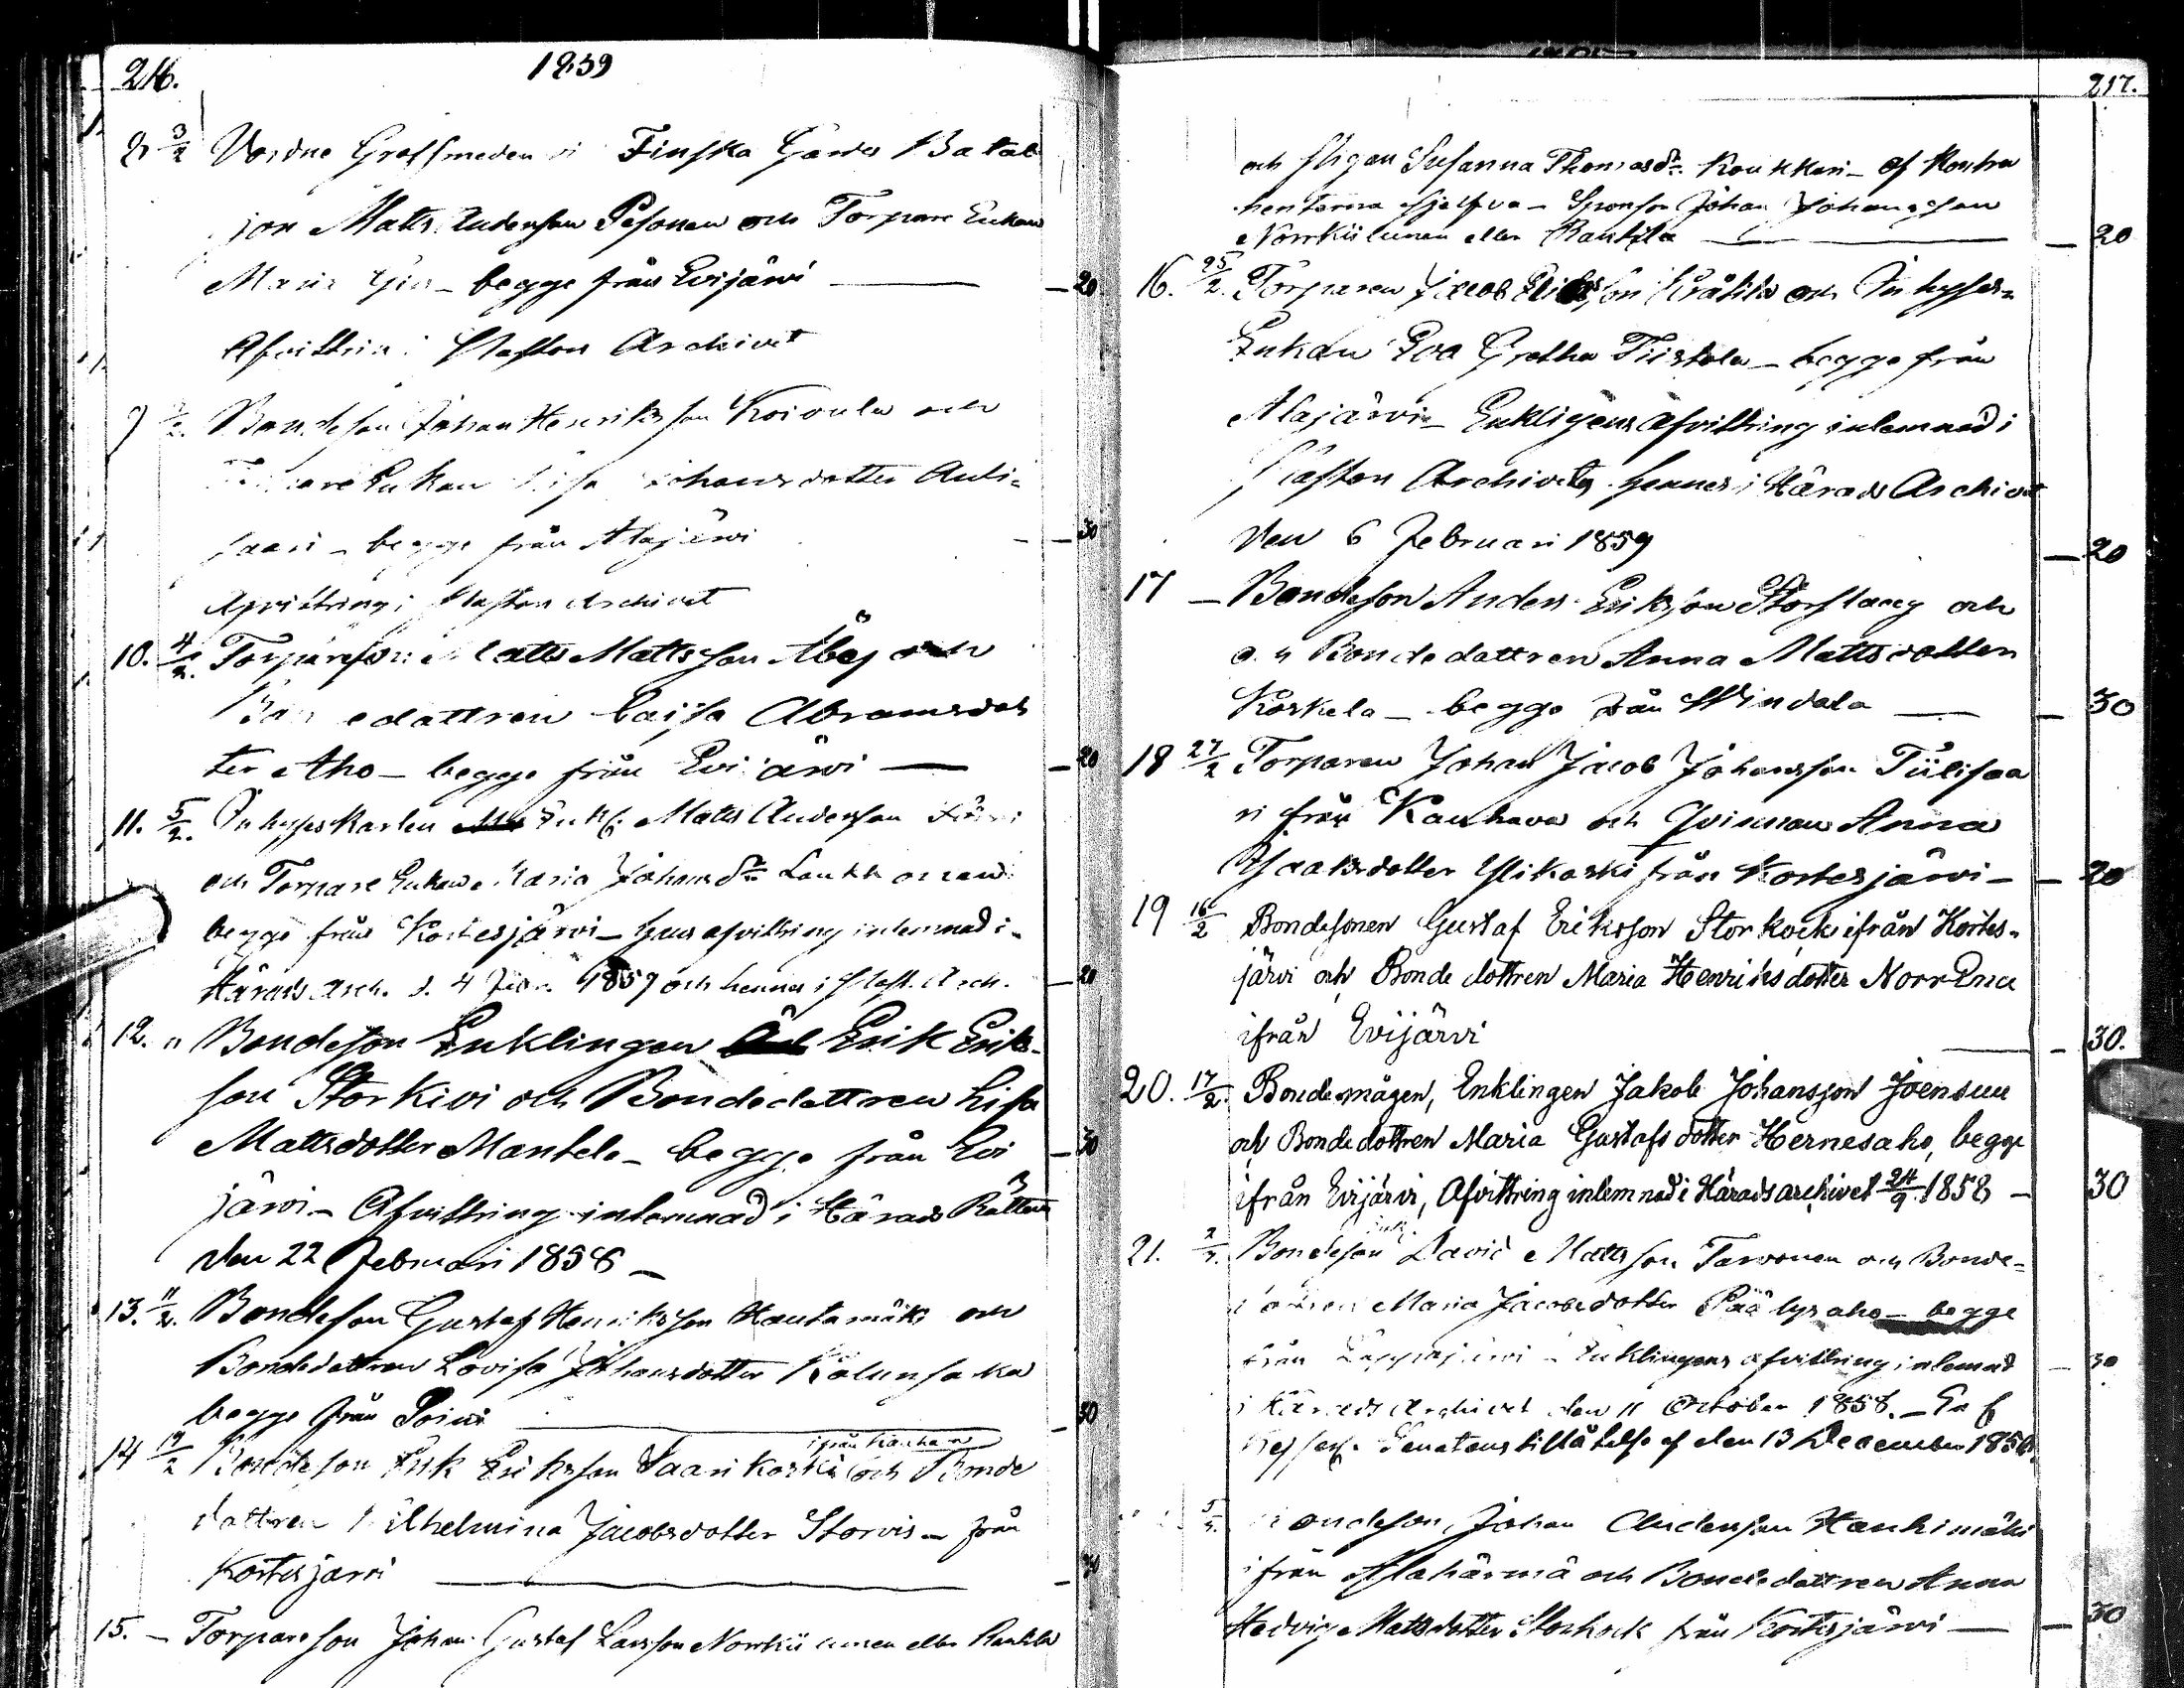 216.
1859
8 3/2 Vordne Grofsmeden vi Finska Gardes Batal
jon Matts Andersson Pesonen och Torpare Enkan
Maria begge från Evijärwi — 20
Afvittrin i Pastors Archivet
9 Bondeson Johan Henriksson Koivula och
Enkan Lisa Johansdotter Auti=
saari — begge från Alajärwi — 30
Afvittring i Pastors Archivet
10. 4/2. Torpareson Matts Mattsson Åbåj och
Bondedattren Caisa Abramsdot
ter Aho — begge från Evijärwi — 20
11. 5/2. Inhyseskarlen Enkl. Matts Andersson
och Torpare Enkan Maria Johansdr Laukkonen
begge från Kortesjärwi — hans afvittring inlemnad i
Härads Arch. d. 4 1859 och hennes i Past. Arch. — 20
12. " Bondeson Enklingen Erik Eriks-
son Storkivi och Bondedattren Lisa
Mattsdotter Mantela — begge från Evi — 30
järwi — Afvittring inlemnad i Härads Rätten
den 22 Februari 1858 —
13. 11/2. Bondeson Gustaf Henriksson Hautamäki och
Bondedattren Lovisa Johansdotter
begge från Soini — 30
ifrån Kauhava
14 19/2 Bondeson Erik Eriksson Saarikoski och Bonde
dattren Wilhelmina Jacobsdotter Storvis — från
Kortesjärvi —
15. — Torpareson Johan Gustaf Larsson Norrkiilunen eller Rantala
217.
och Pigan Susanna Thomasdr. Koukkari — Af Kontra
henterna sjelfva — Sponsor Johan Johansson
Norrkiilunen eller Rantala — 20
16. 25/2. Torparen Jacob Eliasson Kråkila och Inhyses=
Enkan Eva Gretha Tiistola — begge från
Alajärvi — Enklingens afvittring inlemnad i
Pastors Archivet, hennes i Härads Archivet
den 6 Februari 1859 — 20
17 — Bondeson Anders Eriksson Storslang och
och Bondedattren Anna Mattsdotter
Koskela — begge från Windala — 30
18 27/2 Torparen Johan Jacob Johansson Tiilisaa
ri från Kauhava och Qvinnan Anna
Isaaksdotter Ylikoski från Kortesjärwi — 20
19 16/2 Bondesonen Gustaf Eriksson Storkock ifrån Kortes-
järvi och Bonde dottren Maria Henriksdotter Norr Ena
ifrån Evijärvi — 30.
20. 17/2. Bondemågen, Enklingen Jakob Johansson Joensuu
och Bondedottren Maria Gustafsdotter Hernesaho, begge
ifrån Evijärvi, Afvittring inlemnad i Häradsarchivet 24/9 1858 — 30
21. Bondeson Enk. David Mattsson Tarvonen och Bonde=
dattren Maria Jacobsdotter Päälysaho — begge
från Lappajärwi — Enklingens afvittring inlemnad — 30
i Härads Archivet den 11 October 1858. — En l
Kejserl. Senatens tillåtelse af den 13 December 1858.
Bondeson, Johan Andersson Hanhimäki
ifrån Alahärmä och Bondedattren Anna
Hedvig Mattsdotter Storkock från Kortesjärvi — 30